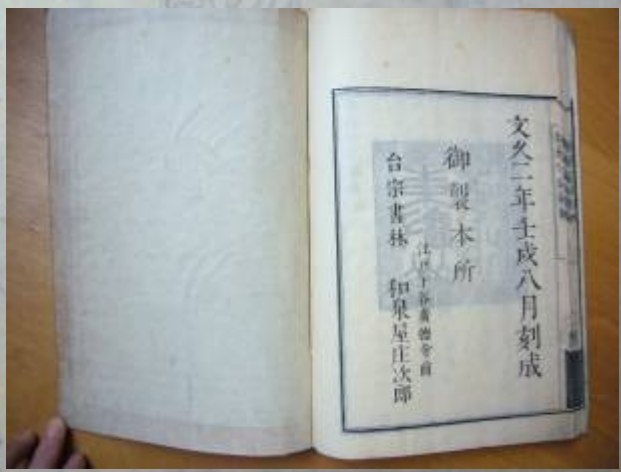 文久二年壬戌八月刻成
御製本所
江戸下谷廣徳寺前
台宗書林
和泉屋庄次郎